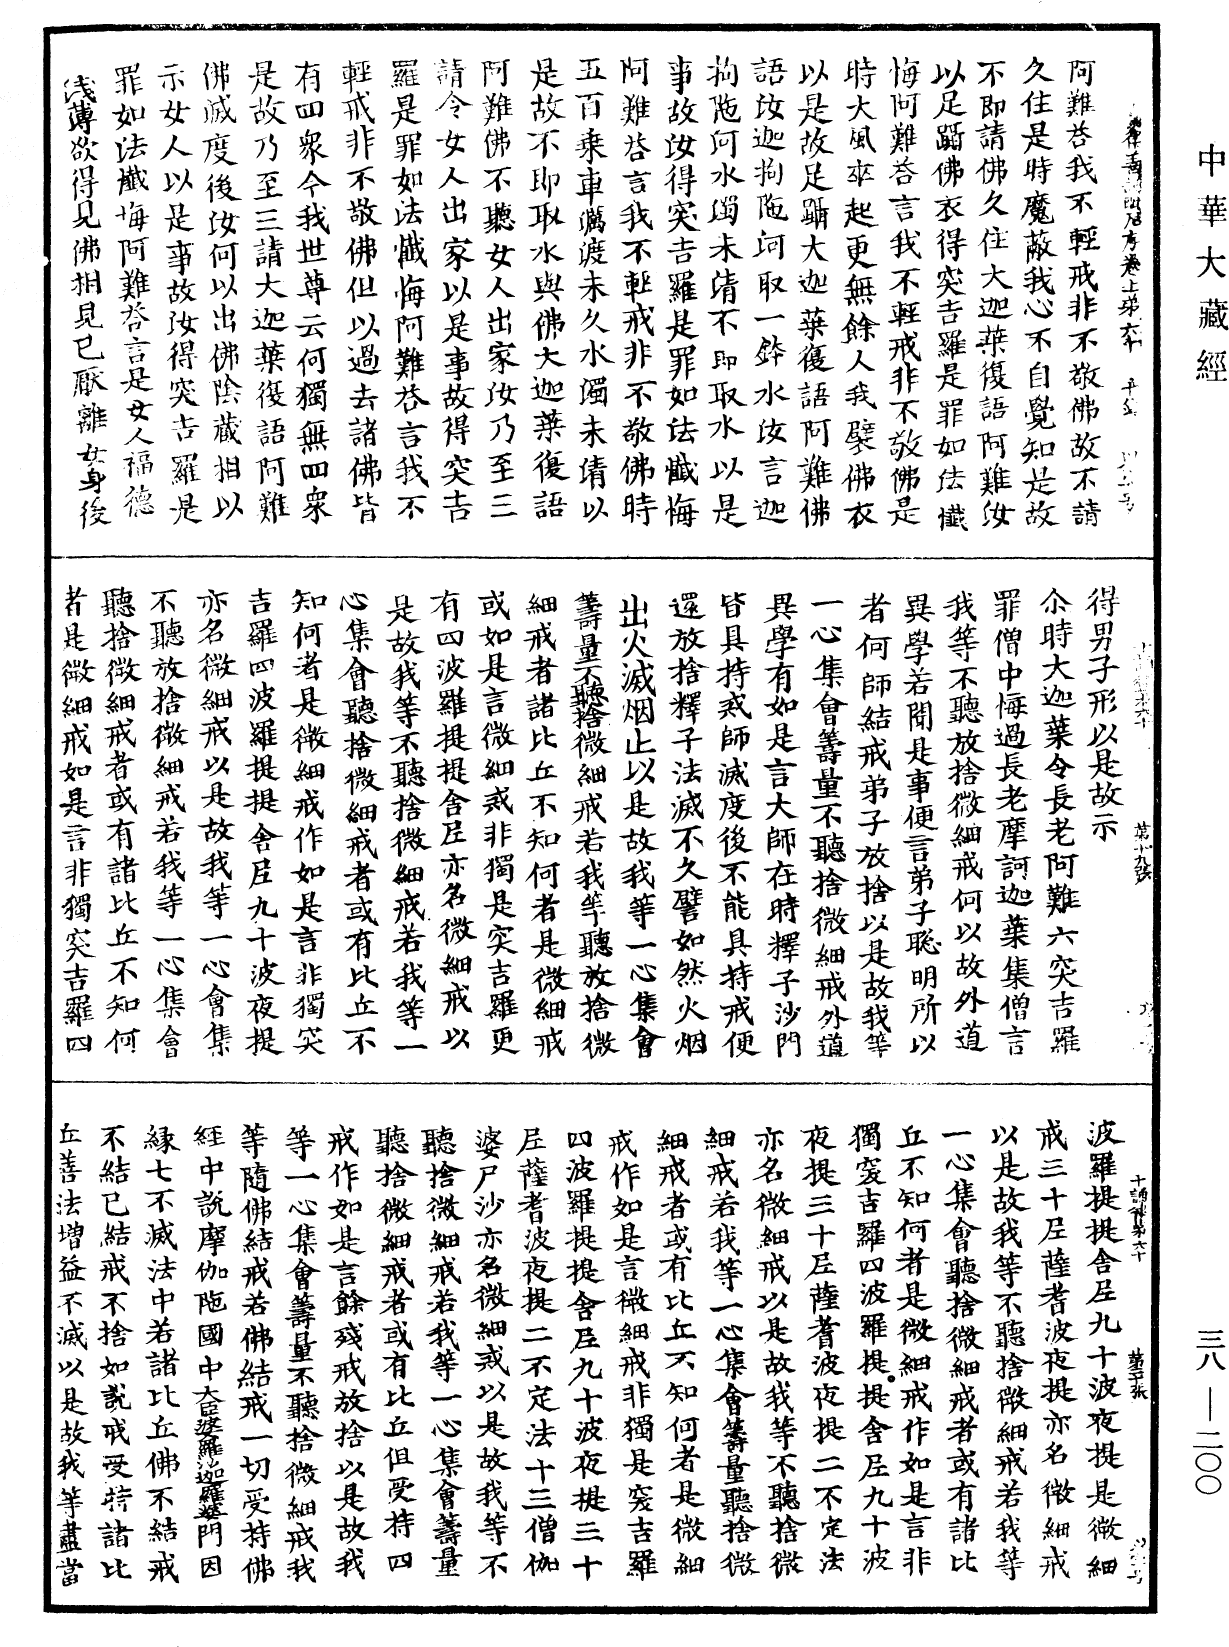 中華大藏經
阿難荅我不輕戒非不敬佛故不請
久住是時魔蔽我心不自覺知是故
不即請佛久住大迦葉復語阿難汝
以足躡佛衣得突吉羅是罪如法懺
悔阿難荅言我不輕戒非不敬佛是
時大風卒起更無餘人我襞佛衣
以是故足躡大迦葉復語阿難佛
語汝迦拘陁河取一鉢水汝言迦
拘陁河水濁未清不即取水以是
事故汝得突吉羅是罪如法懺悔
阿難荅言我不輕戒非不敬佛時
五百乗車濿渡未久水濁未清以
是故不即取水與佛大迦葉復語
阿難佛不聽女人出家汝乃至三
請令女人出家以是事故得突吉
羅是罪如法懺悔阿難荅言我不
輕戒非不敬佛但以過去諸佛皆
有四衆今我世尊云何獨無四衆
是故乃至三請大迦葉復語阿難
佛滅度後汝何以出佛陰藏相以
示女人以是事故汝得突吉羅是
罪如法懺悔阿難荅言是女人福德
淺薄欲得見佛相見已厭離女身後
得男子形以是故示
尒時大迦葉令長老阿難六突吉羅
罪僧中悔過長老摩訶迦葉集僧言
我等不聽放捨微細戒何以故外道
異學若聞是事便言弟子聡明所以
者何師結戒弟子放捨以是故我等
一心集會籌量不聽捨微細戒外道
異學有如是言大師在時釋子沙門
皆具持戒師滅度後不能具持戒便
還放捨釋子法滅不久譬如然火烟
出火滅烟止以是故我等一心集會
籌量不聽捨微細戒若我等聽放捨微
細戒者諸比丘不知何者是微細戒
或如是言微細戒非獨是突吉羅更
有四波羅提提舍尼亦名微細戒以
是故我等不聽捨微細戒若我等一
心集會聽捨微細戒者或有比丘不
知何者是微細戒作如是言非獨突
吉羅四波羅提提舍尼九十波夜提
亦名微細戒以是故我等一心會集
不聽放捨微細戒若我等一心集會
聽捨微細戒者或有諸比丘不知何
者是微細戒如是言非獨突吉羅四
波羅提提舍尼九十波夜提是微細
戒三十尼薩耆波夜提亦名微細戒
以是故我等不聽捨微細戒若我等
一心集會聽捨微細戒者或有諸比
丘不知何者是微細戒作如是言非
獨突吉羅四波羅提提舍尼九十波
夜提三十尼薩耆波夜提二不定法
亦名微細戒以是故我等不聽捨微
細戒若我等一心集會籌量聽捨微
細戒者或有比丘不知何者是微細
戒作如是言微細戒非獨是突吉羅
四波羅提提舍尼九十波夜提三十
尼薩耆波夜提二不定法十三僧伽
婆尸沙亦名微細戒以是故我等不
聽捨微細戒若我等一心集會籌量
聽捨微細戒者或有比丘但受持四
戒作如是言餘殘戒放捨以是故我
等一心集會籌量不聽捨微細戒我
等隨佛結戒若佛結戒一切受持佛
經中說摩伽陁國中大臣婆羅沙迦羅婆門因
緣七不滅法中若諸比丘佛不結戒
不結已結戒不捨如說戒受持諸比
丘善法增益不滅以是故我等盡當
三八—二〇〇